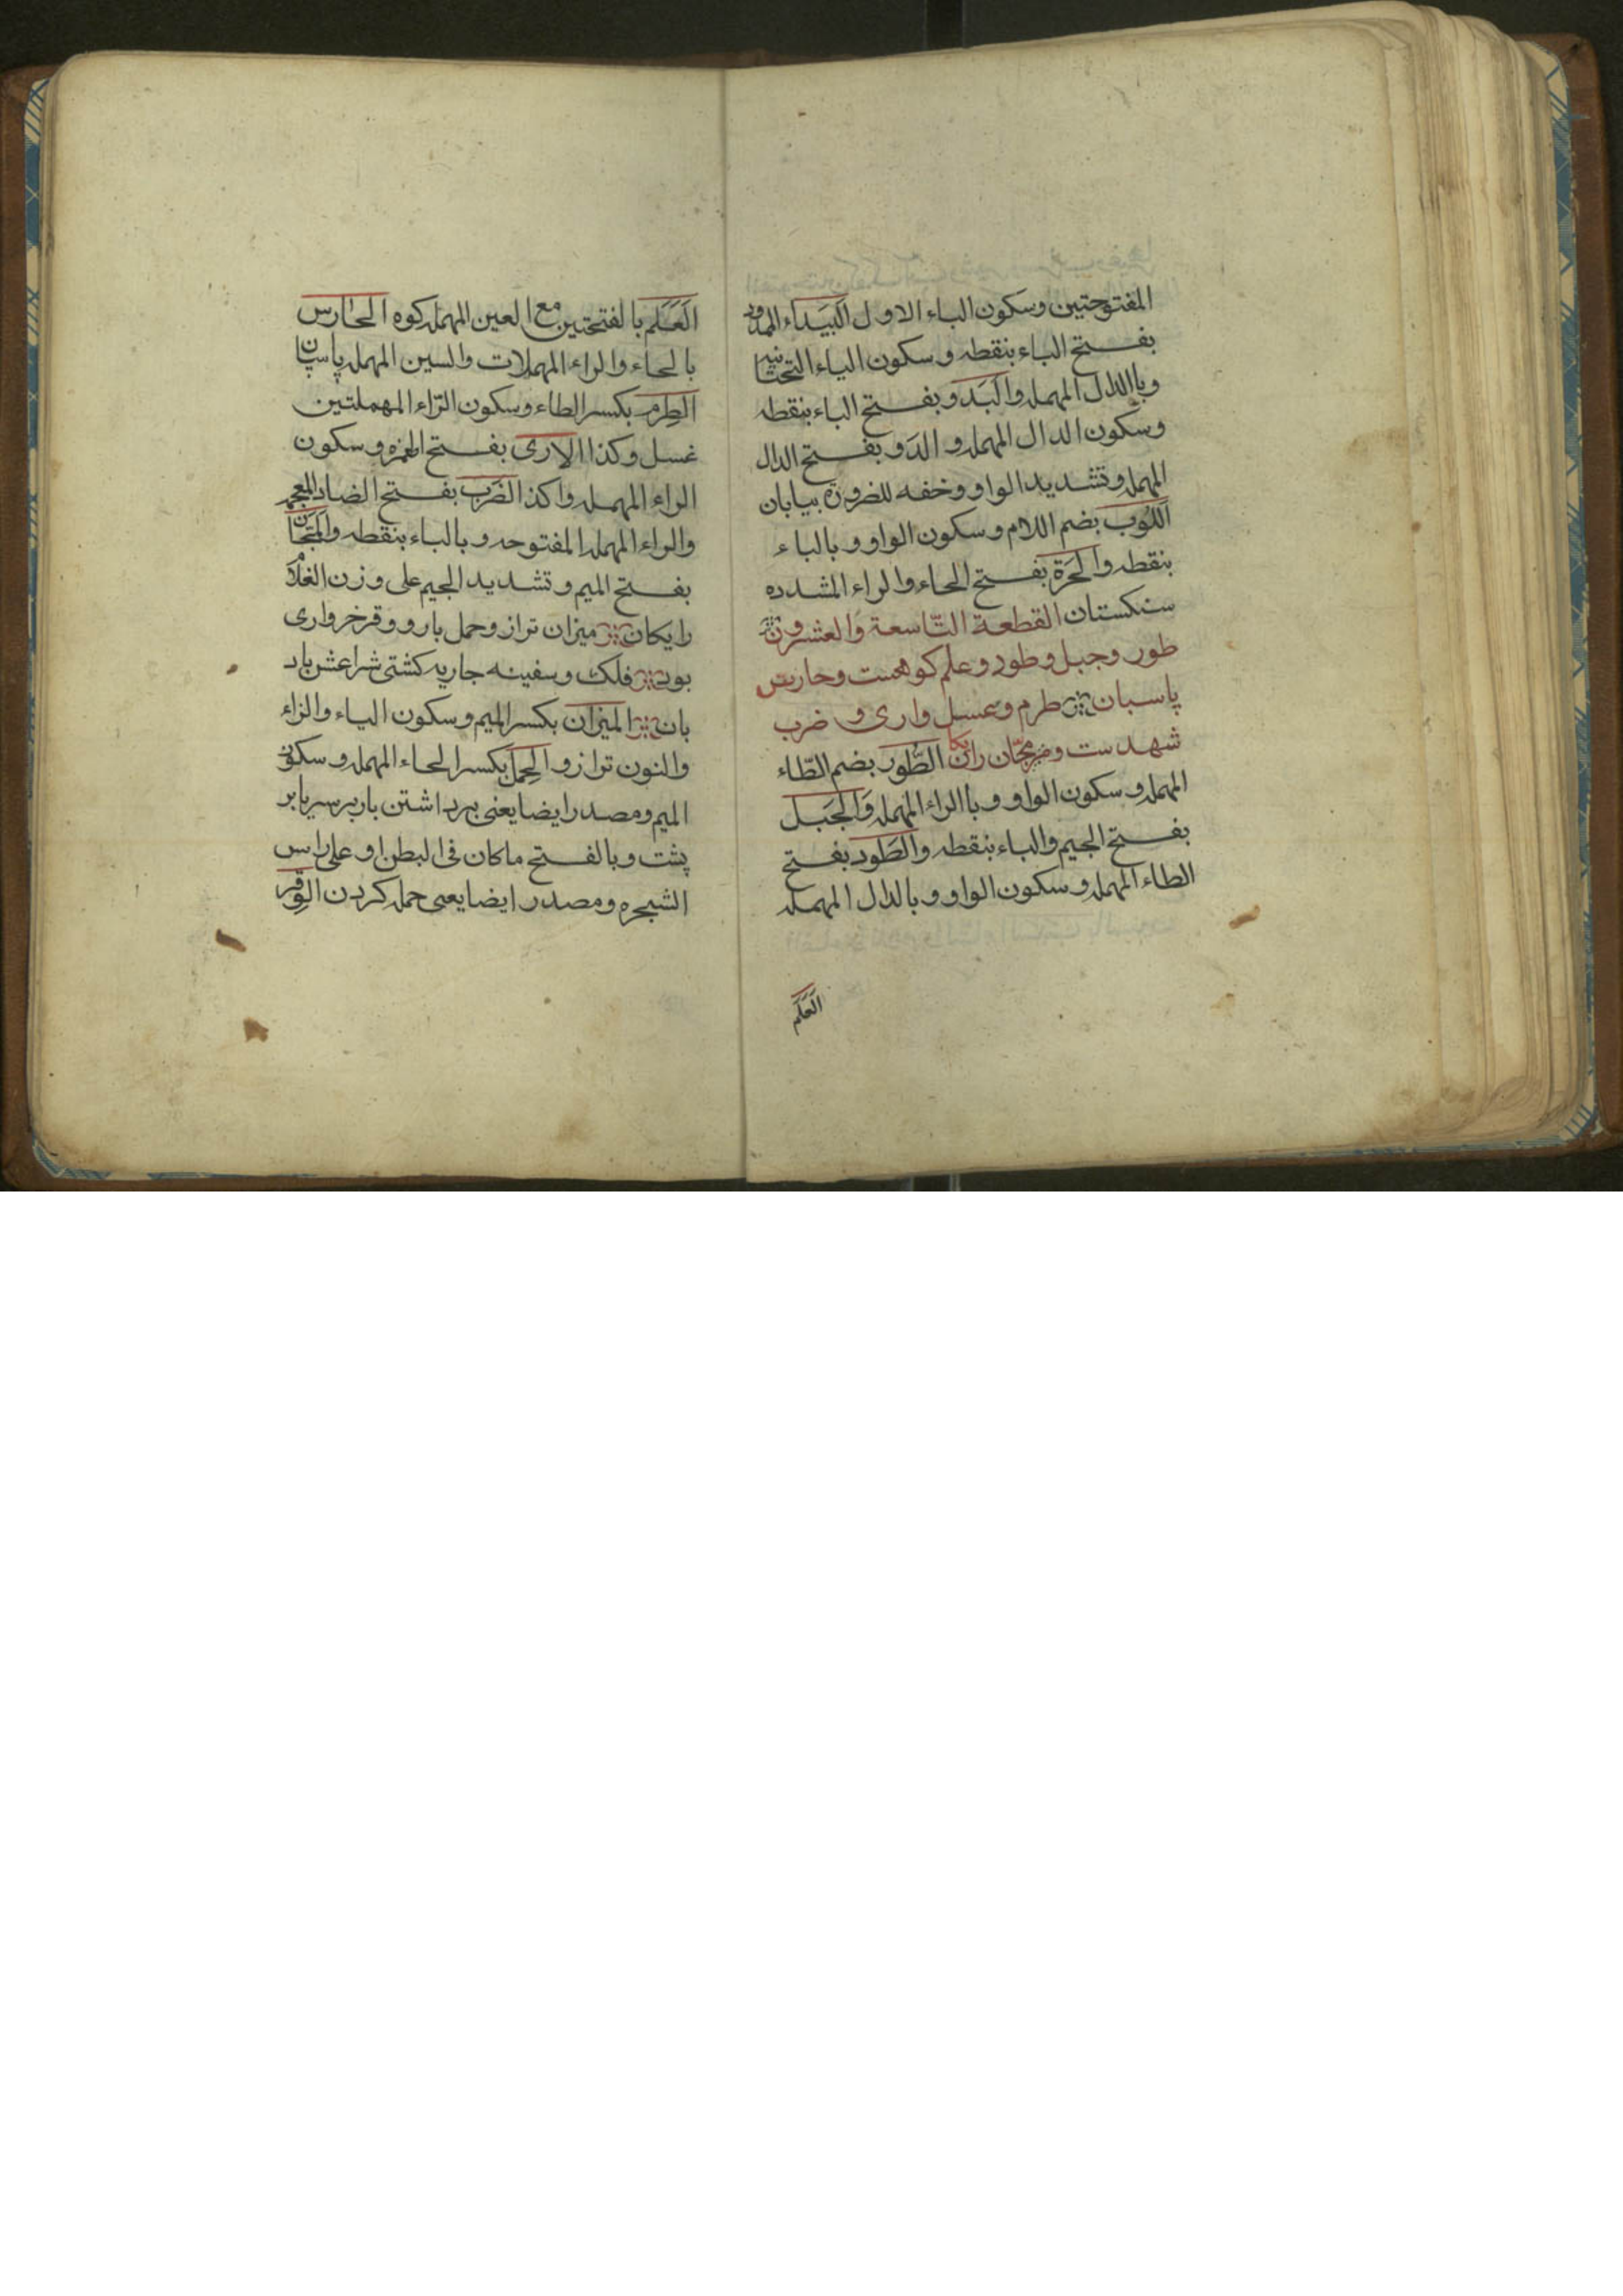 المفتوحتين وسكون الباء الاول البيداء الممدود
بفتح الباء بنقطه وسكون الياء التحتانيه
وبا الدال المهمله والبدو بفتح الباء بنقطه
وسكون الدال المهمله والدو بفتح الدال
المهمله وتشديد الواو وخفه للضرورة بيابان
اللوب بضم اللام وسكون الواو وبالباء
بنقطه والحرة بفتح الحاء والراء المشدده
سنكستان القطعة التاسعة والعشرون
طور وجبل وطود وعلم كوهست وحارس
پاسبان طرم وعسل وارى و ضرب
شهدست و مجّان رايكا الطُّور بضم الطّاء
المهمله وسكون الواو وبا الراء المهمله والجَبَل
بفتح الجيم والباء بنقطه والطَود بفتح
الطاء المهمله وسكون الواو وبالدال المهمله
العَلَم
العَلَم بالفتحتين مع العين المهمله كوه الحارس
بالحاء والراء المهملات والسين المهمله پاسپان
الطِرم بكسر الطاء وسكون الرّاء المهملتين
غسل وكذا الارى بفتح الهمزه وسكون
الراء المهمله واكذ الضَرَب بفتح الضاد المعجمه
والراء المهمله المفتوحه وبالباء بنقطه والمَجّان
بفتح الميم وتشديد الجيم على وزن الغلام
رايكان ميزان ترازو حمل بار و وقر خروارى
بود فلك وسفينه جاريه كشتى شراعش باد
بان الميزان بكسر الميم وسكون الياء والزاء
والنون ترازو الحِمل بكسر الحاء المهمله وسكون
الميم ومصدر ايضا يعنى برداشتن بار بر سر يا بر
پشت وبالفتح ماكان فى البطن او على راس
الشجره ومصدر ايضا يعنى حمله كردن الوِقر